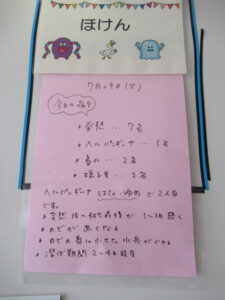 ほけん
7月29日(火)
今日の病欠
・発熱 … 7名
・ヘルパンギーナ … 1名
・ … 2名
・ … 2名
ヘルパンギーナ で2人目
です。
・発熱 38〜40℃ 1〜3日 続く
・のどが赤くなる
・のどの奥に小さな水疱ができる
・潜伏期間 2〜4日